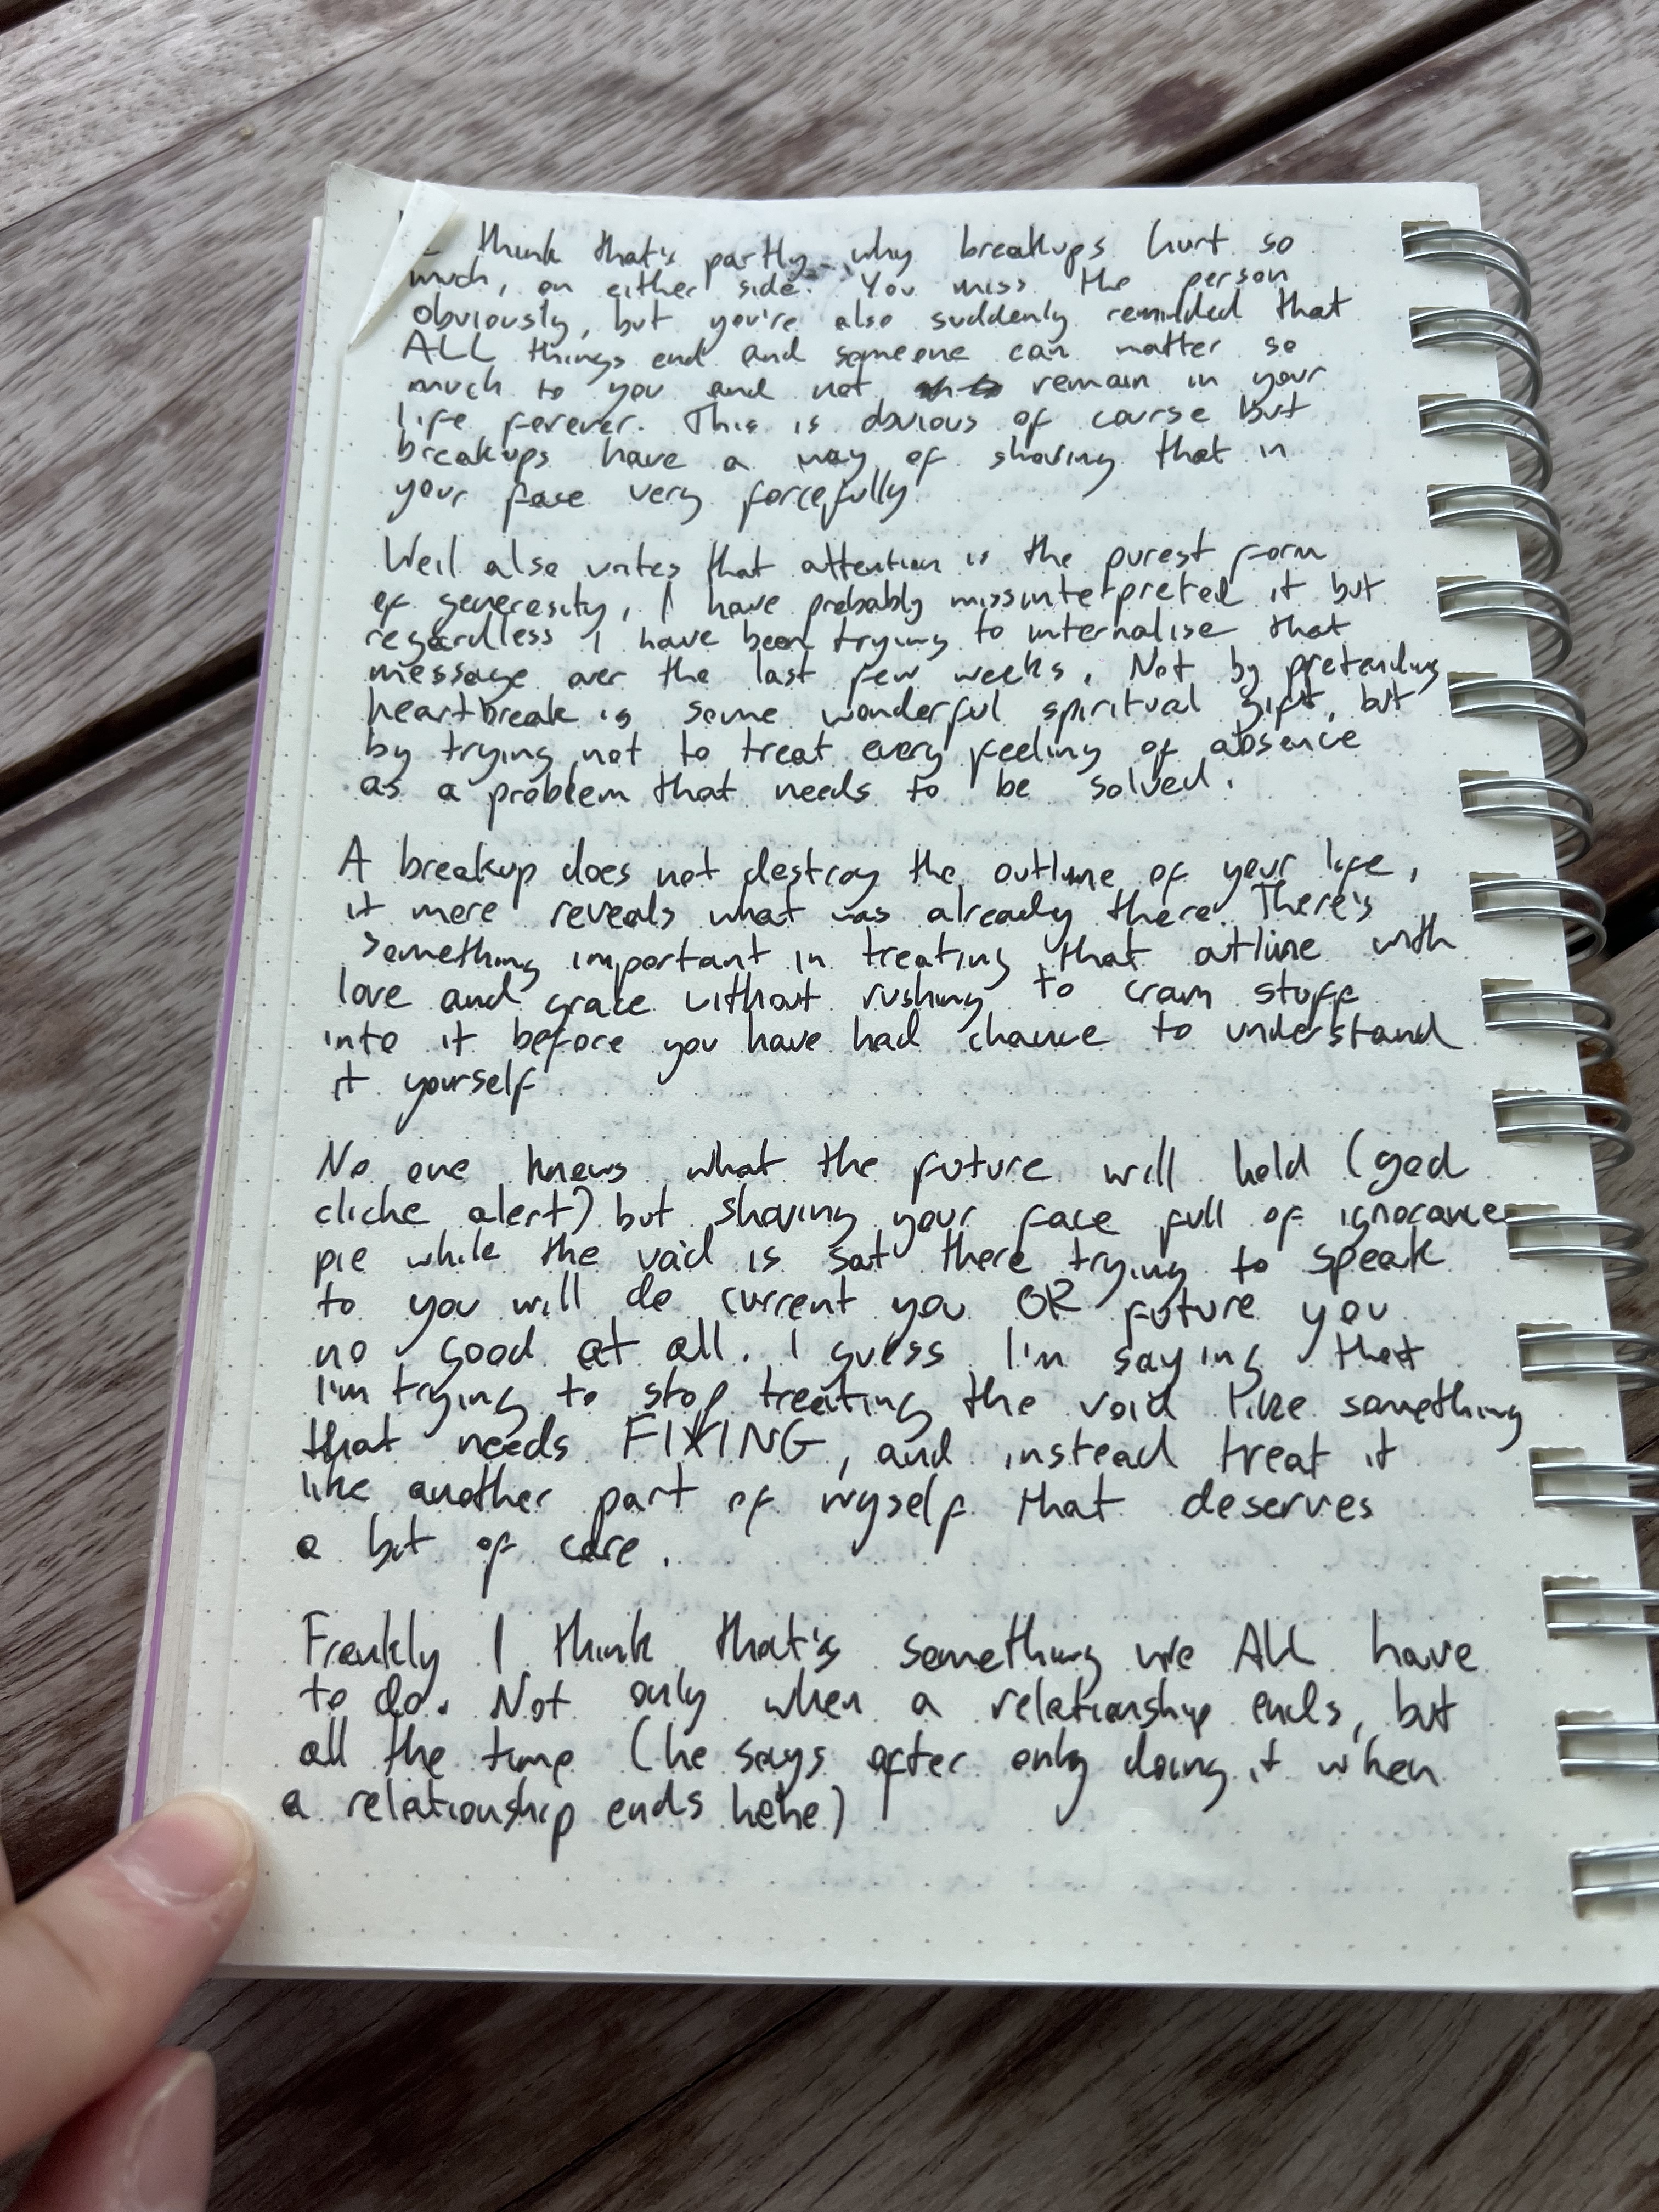 I think that's partly why breakups hurt so
much, on either side. You miss the person
obviously, but you're also suddenly reminded that
ALL things end and someone can matter so
much to you and not remain in your
life forever. This is obvious of course but
breakups have a way of shoving that in
your face very forcefully.
Weil also writes that attention is the purest form
of generosity, I have probably missinterpreted it but
regardless I have been trying to internalise that
message over the last few weeks. Not by pretending
heartbreak is some wonderful spiritual gift, but
by trying not to treat every feeling of absence
as a problem that needs to be solved.
A breakup does not destroy the outline of your life,
it mere reveals what was already there. There's
something important in treating that outline with
love and grace without rushing to cram stuff
into it before you have had chance to understand
it yourself
No one knows what the future will hold (god
cliche alert) but shoving your face full of ignorance
pie while the void is sat there trying to speak
to you will do current you OR future you
no good at all. I guess I'm saying that
I'm trying to stop treating the void like something
that needs FIXING, and instead treat it
like another part of myself that deserves
a bit of care.
Frankly I think that's something we ALL have
to do. Not only when a relationship ends, but
all the time (he says after only doing it when
a relationship ends hehe)